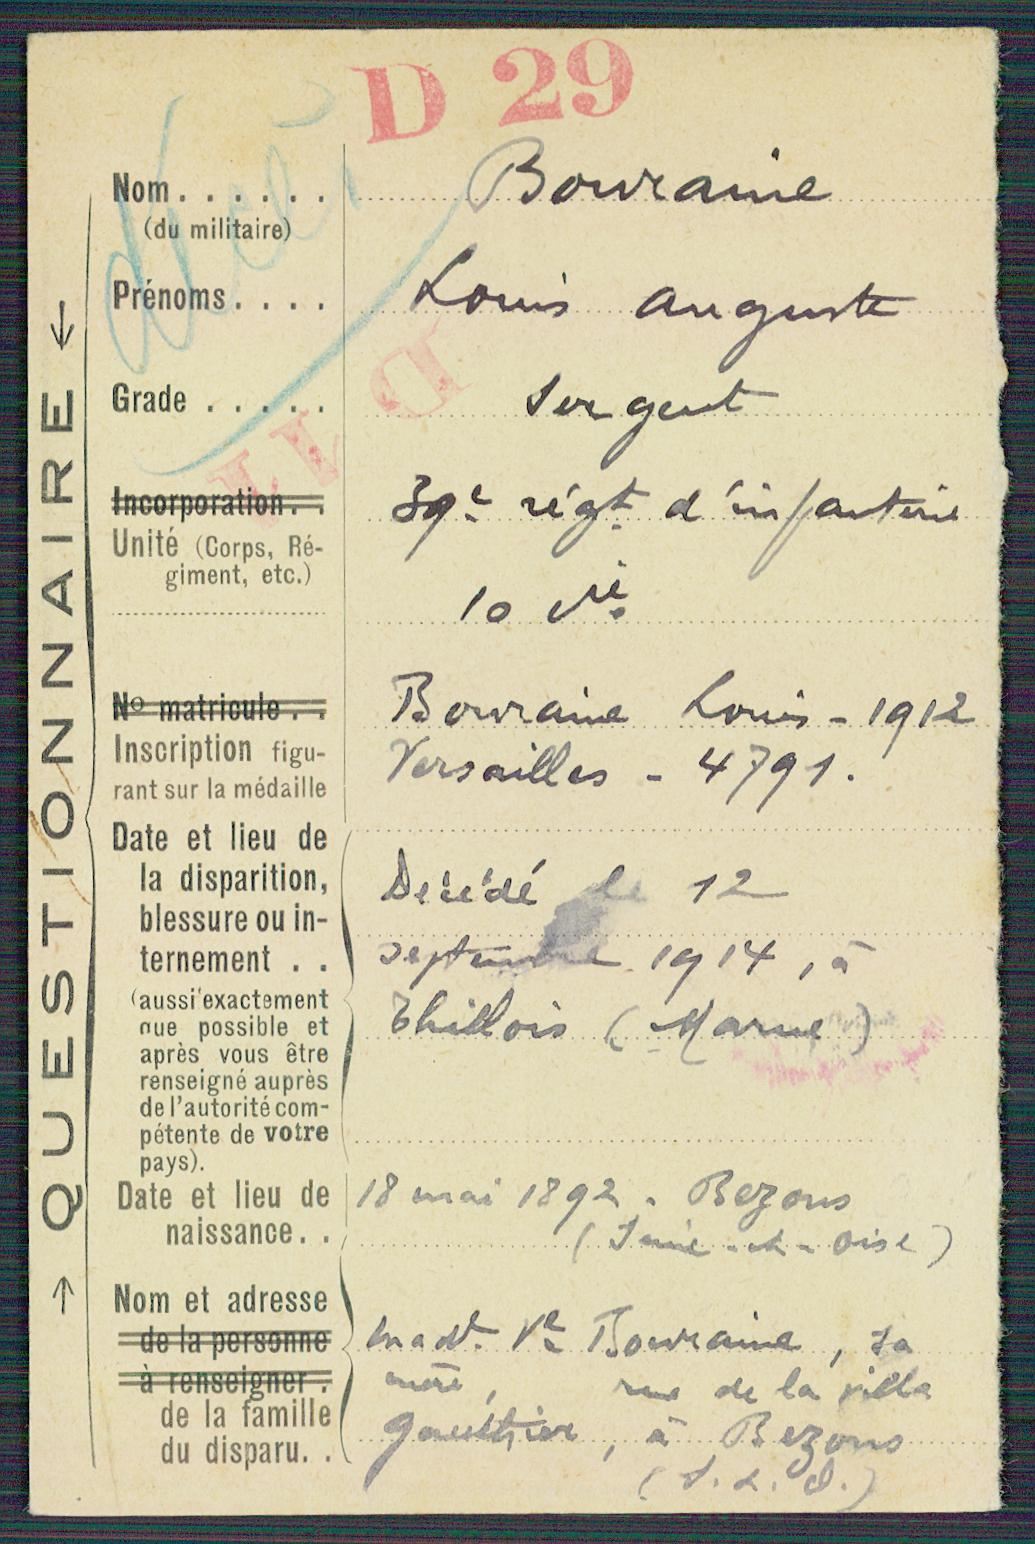 D 29
Nom . . . . . . Bouraine
(du militaire)
Prénoms . . . . Louis Auguste
D 11
Grade . . . . . Sergent
Incorporation . . 39e régt d'infanterie
Unité (Corps, Ré-
giment, etc.) 10 Cie
No matricule . . Bouraine Louis - 1912
Inscription figu- Versailles - 4791.
rant sur la médaille
Date et lieu de
la disparition, Décédé le 12
blessure ou in-
ternement . . septembre 1914, à
(aussi exactement Thillois (Marne)
que possible et
après vous être
renseigné auprès
de l'autorité com-
pétente de votre
pays).
Date et lieu de 18 mai 1892 - Bezons
naissance . . (Seine-et-Oise)
Nom et adresse
de la personne Made Ve Bouraine, sa
à renseigner . mère, rue de la villa
de la famille Gaulthier, à Bezons
du disparu. . (S. & O.)
← QUESTIONNAIRE →